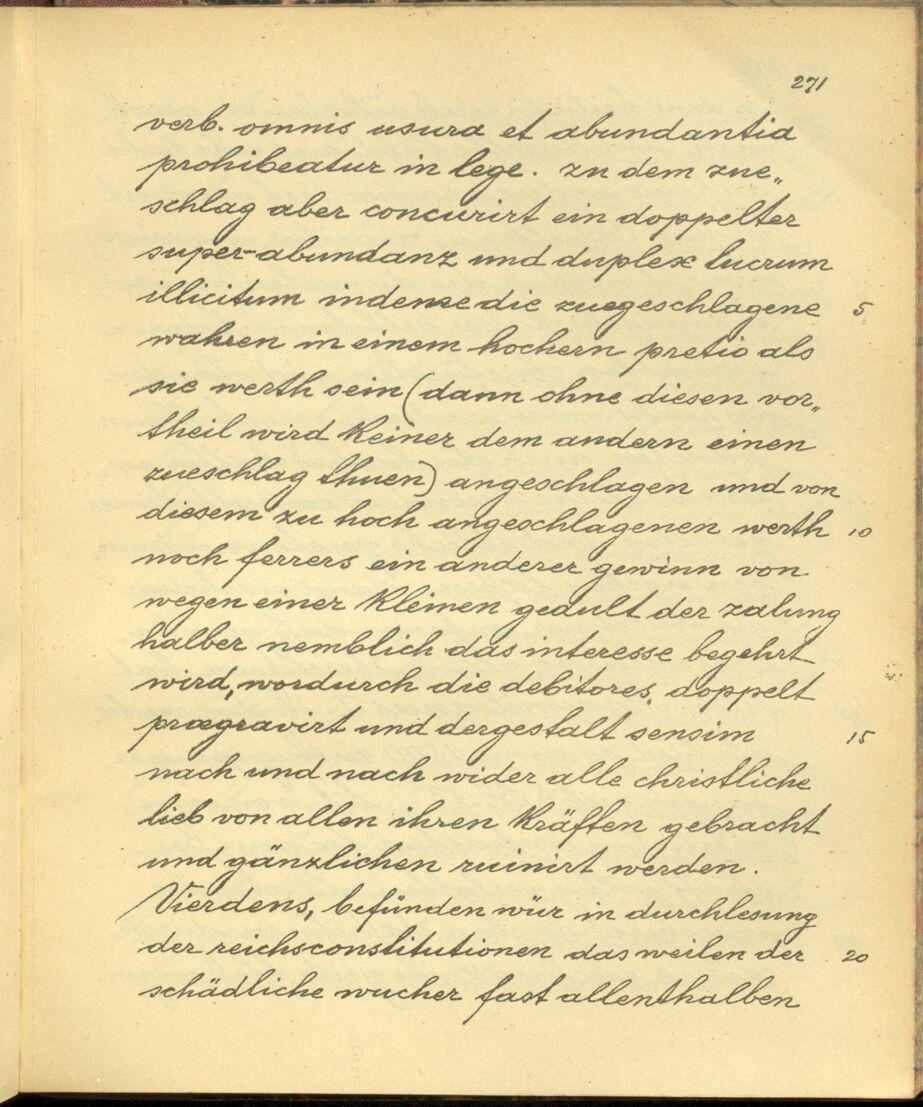 271
verb. omnis usura et abundantia
prohibeatur in lege. zu dem zue„
schlag aber concurirt ein doppelter
super-abundanz und duplex lucrum
illicitum indeme die zuegeschlagene 5
wahren in einem hochern pretio als
sie werth sein (dann ohne diesen vor„
theil wird keiner dem andern einen
zueschlag thuen) angeschlagen und von
diesem zu hoch angeschlagenen werth 10
noch ferrers ein anderer gewinn von
wegen einer kleinen gedult der zalung
halber nemblich das interesse begehrt
wird, wordurch die debitores doppelt
prægravirt und dergestalt sensim 15
nach und nach wider alle christliche
lieb von allen ihren kräften gebracht
und gänzlichen ruinirt werden.
Vierdens, befünden wür in durchlesung
der reichsconstitutionen das weilen der 20
schädliche wucher fast allenthalben